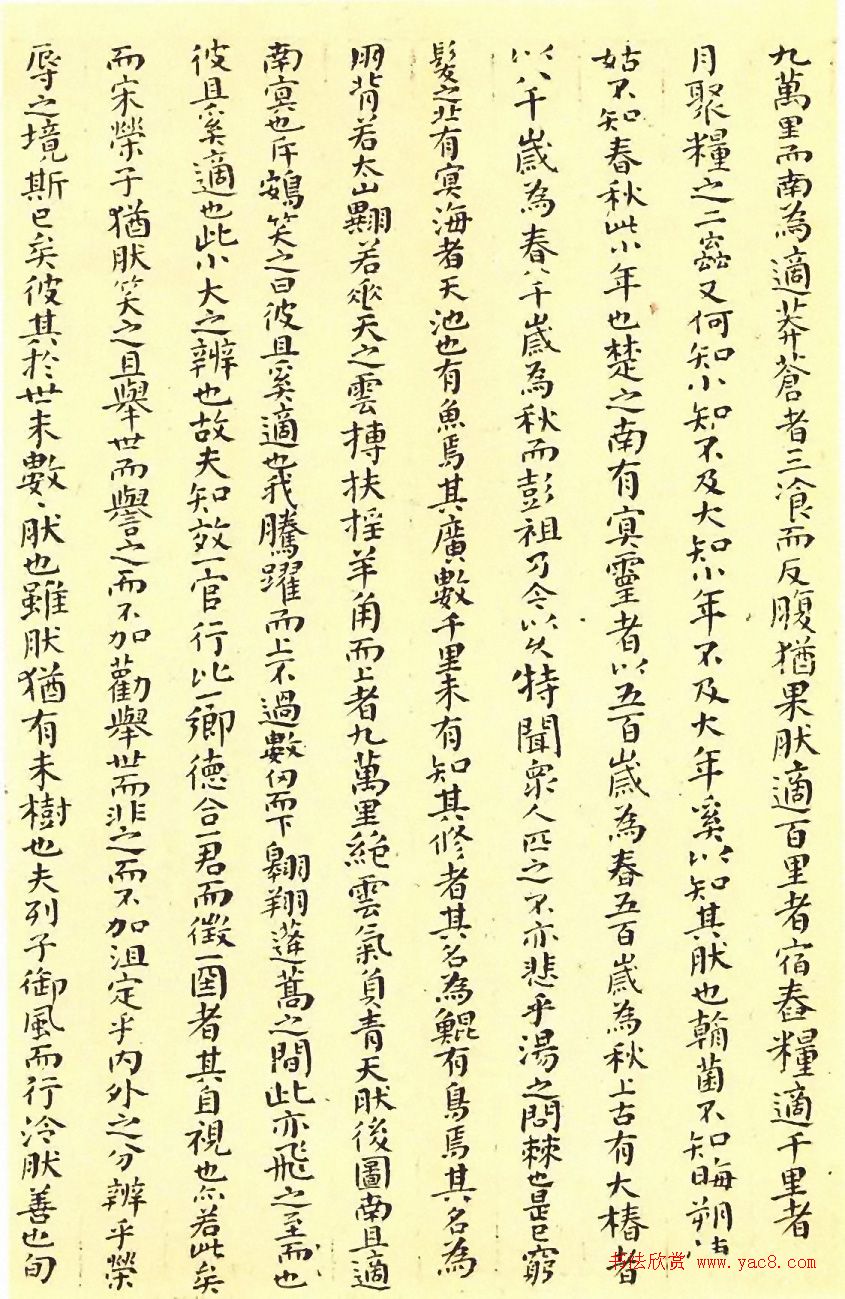 九萬里而南為適莽蒼者三飡而反腹猶果肰適百里者宿舂糧適千里者
月聚糧之二蟲又何知小知不及大知小年不及大年奚以知其肰也朝菌不知晦朔
姑不知春秋此小年也楚之南有冥靈者以五百歲為春五百歲為秋上古有大椿者
以八千歲為春八千歲為秋而彭祖乃今以久特聞衆人匹之不亦悲乎湯之問棘也是已窮
髮之北有冥海者天池也有魚焉其廣數千里未有知其修者其名為鯤有鳥焉其名為
朋背若太山翼若垂天之雲摶扶摇羊角而上者九萬里絶雲氣負青天肰後圖南且適
南冥也斥鴳笑之曰彼且奚適也我騰躍而上不過數仞而下翱翔蓬蒿之間此亦飛之至而也
彼且奚適也此小大之辨也故夫知效一官行比一鄉德合一君而徵一國者其自視也亦若此矣
而宋榮子猶肰笑之且舉世而譽之而不加勸舉世而非之而不加沮定乎内外之分辨乎榮
辱之境斯已矣彼其於世未數〻肰也雖肰猶有未樹也夫列子御風而行泠肰善也旬
书法欣赏 www.yac8.com